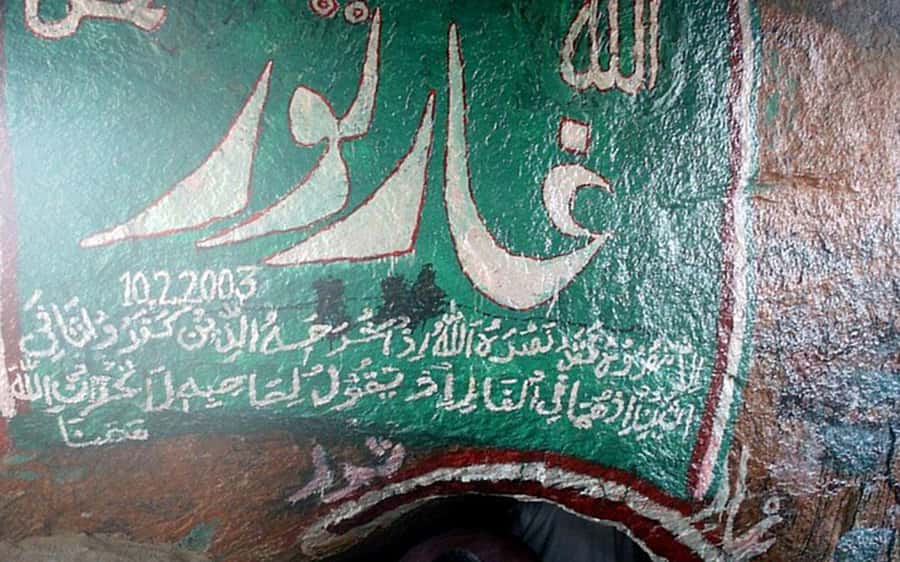 الله
غار ثور
10.2.2003
الا تنصروه فقد نصره الله اذ اخرجه الذين كفروا ثاني
اثنين اذ هما في الغار اذ يقول لصاحبه لا تحزن ان الله
معنا
غار ثور